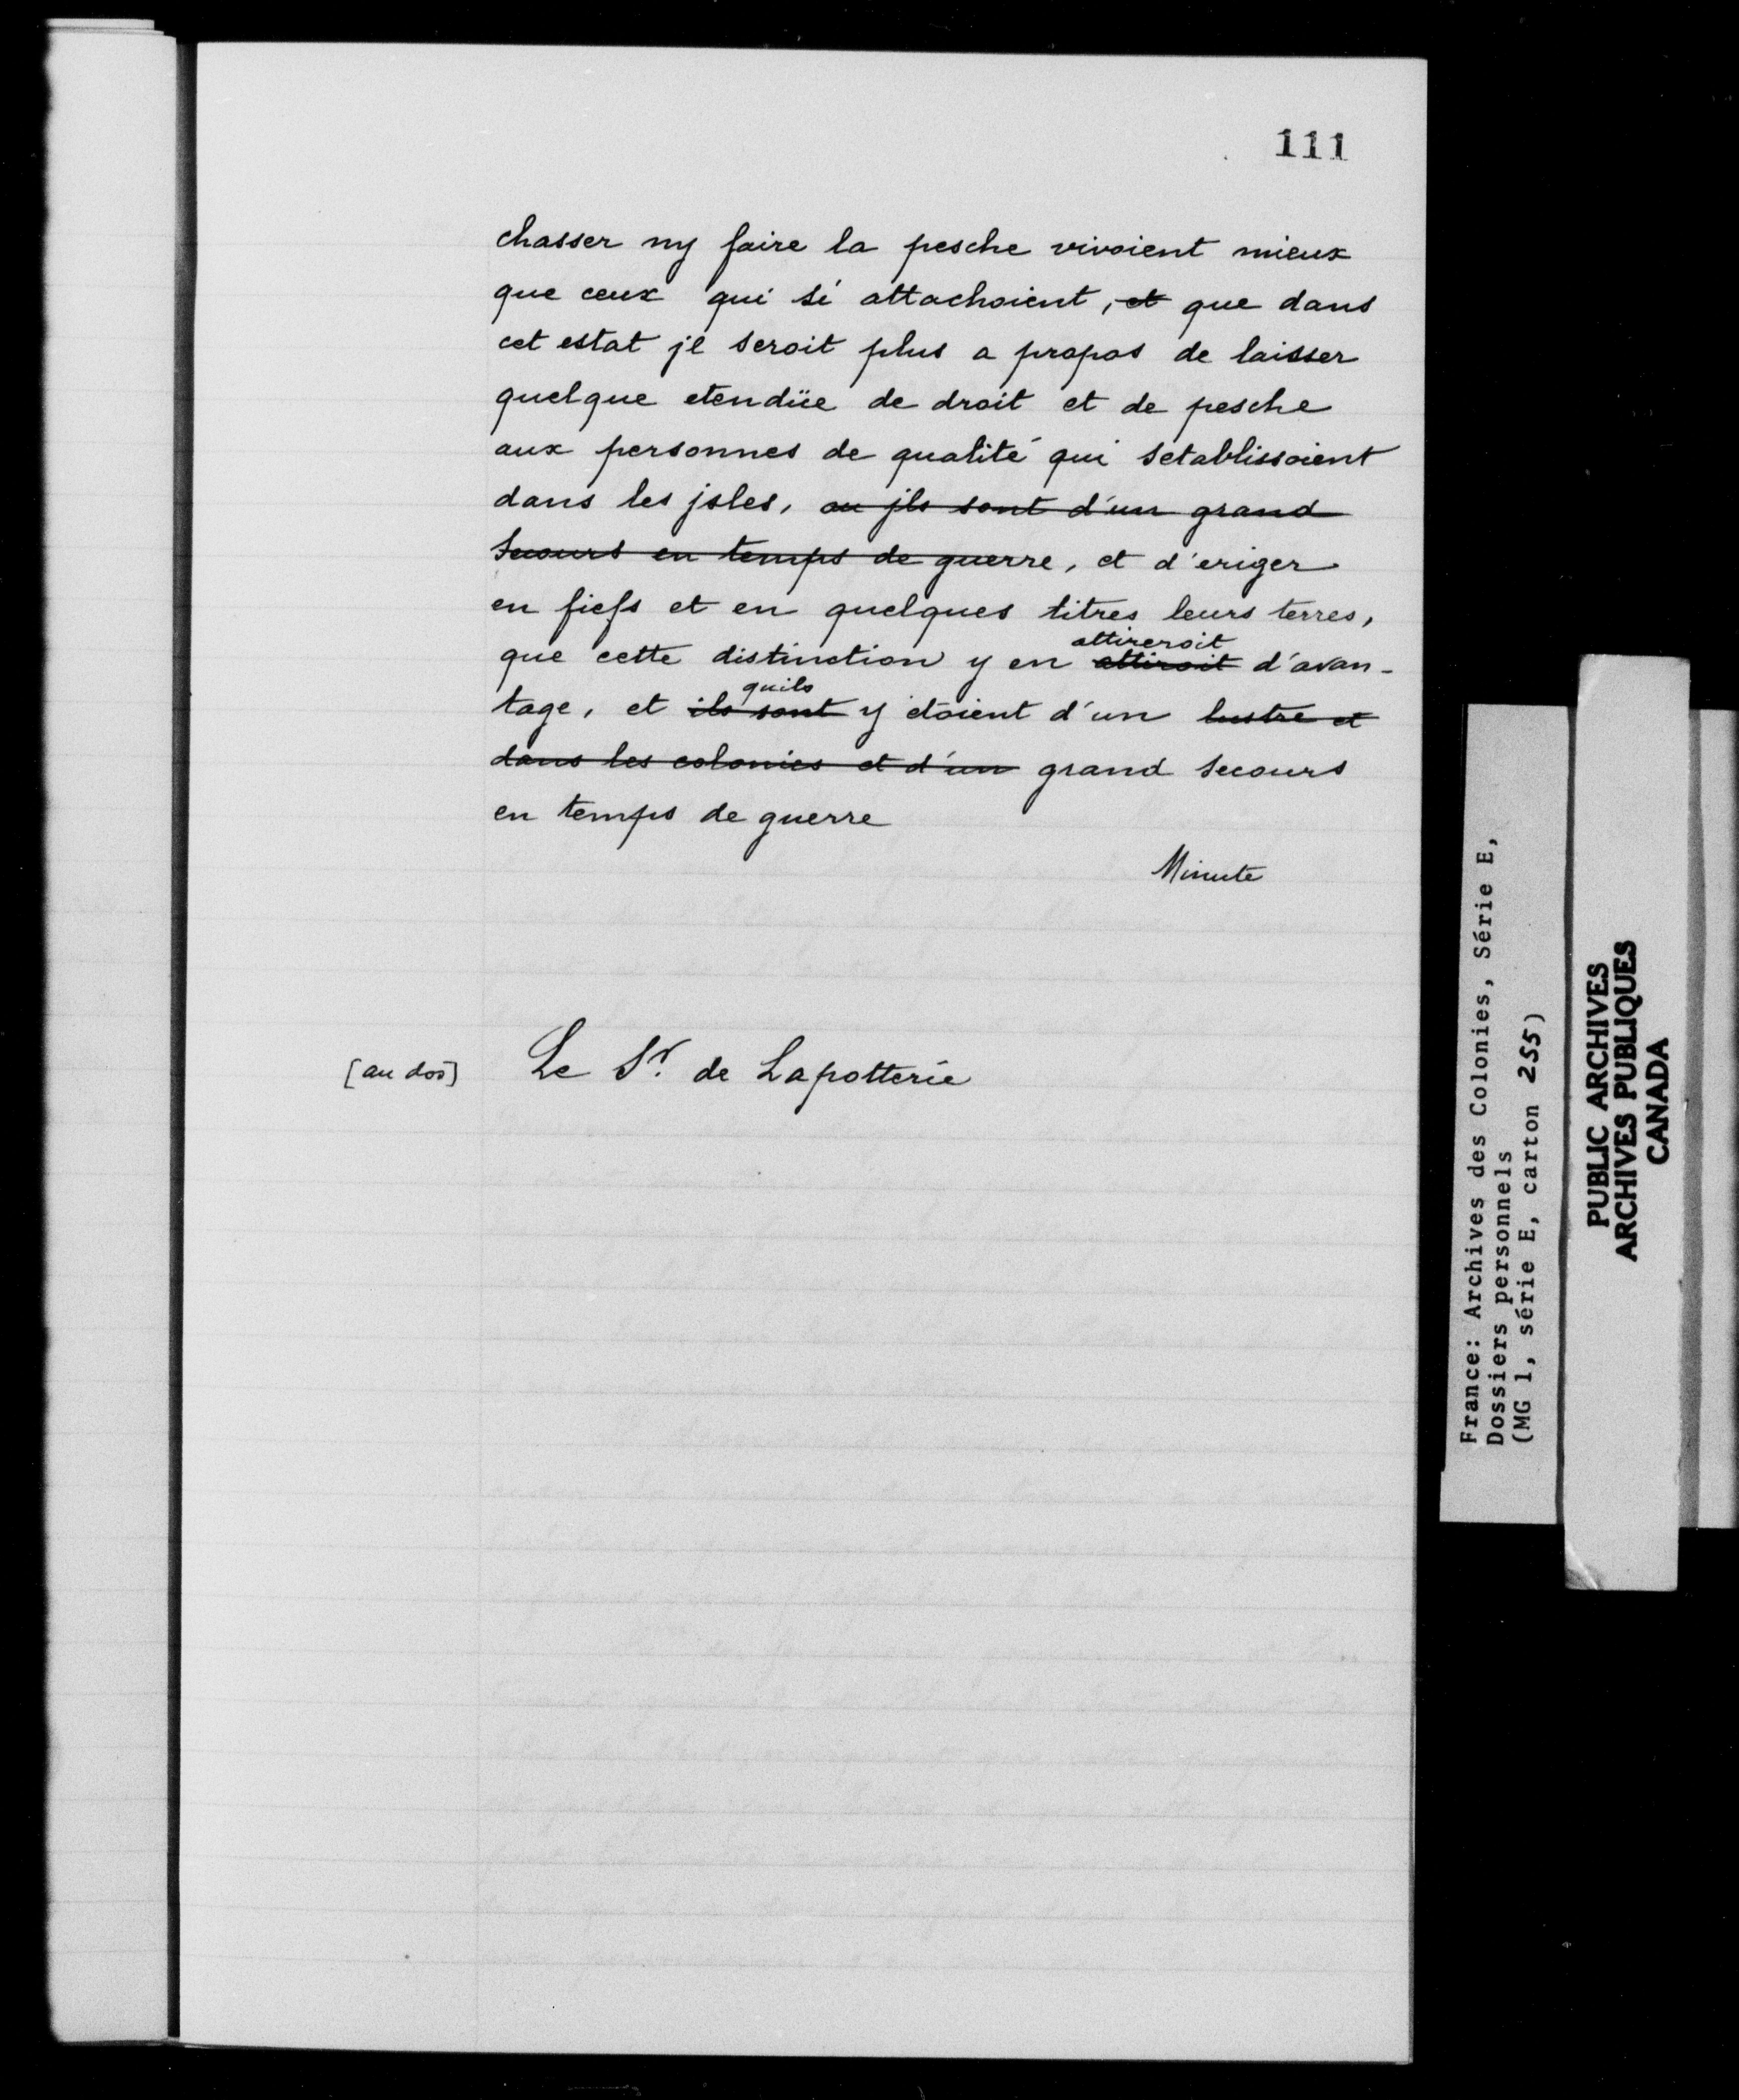 111
chasser ny faire la pesche vivoient mieux
que ceux qui si attachoient, et que dans
cet estat jl seroit plus a propos de laisser
quelque etendüe de droit et de pesche
aux personnes de qualité qui setablissoient
dans les jsles, ou jls sont d'un grand
secours en temps de guerre, et d'eriger
en fiefs et en quelques titres leurs terres,
attireroit
que cette distinction y en attiroit d'avan-
quils
tage, et ils sont y étoient d'un lustre et
dans les colonies et d'un grand secours
en temps de guerre
Minute
[au dos] Le Sr. de Lapotterie
France: Archives des Colonies, Série E,
Dossiers personnels
(MG 1, série E, carton 255)
PUBLIC ARCHIVES
ARCHIVES PUBLIQUES
CANADA